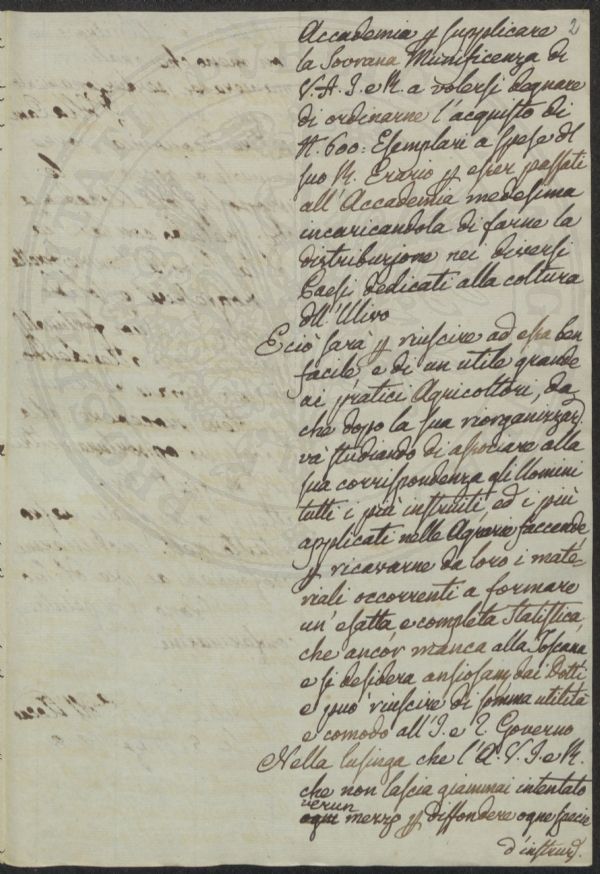 2
Accademia p supplicare
la Sovrana Munificenza di
V. A. I. e R. a volersi degnare
di ordinarne l'acquisto di
N. 600: Esemplari a spese del
suo R. Erario p esser passati
all'Accademia medesima
incaricandola di farne la
distribuzione nei diversi
Paesi dedicati alla coltura
dell'Ulivo
E ciò sarà p riuscire ad essa ben
facile e di un utile grande
ai pratici Agricoltori, da
che dopo la sua riorganizzaz.
và studiando di associare alla
sua corrispondenza gli Uomini
tutti i più instruiti, ed i più
applicati nelle Agrarie faccende
p ricavarne da loro i mate-
riali occorrenti a formare
un'esatta e completa Statistica,
che ancor manca alla Toscana
e si desidera ansiosam. dai Dotti
e può riuscire di somma utilità
e comodo all'I. e R. Governo
Nella lusinga che l'A. V. I. e R.
che non lascia giammai intentato
verun
ogni mezzo p diffondere ogni specie
d'instruz.